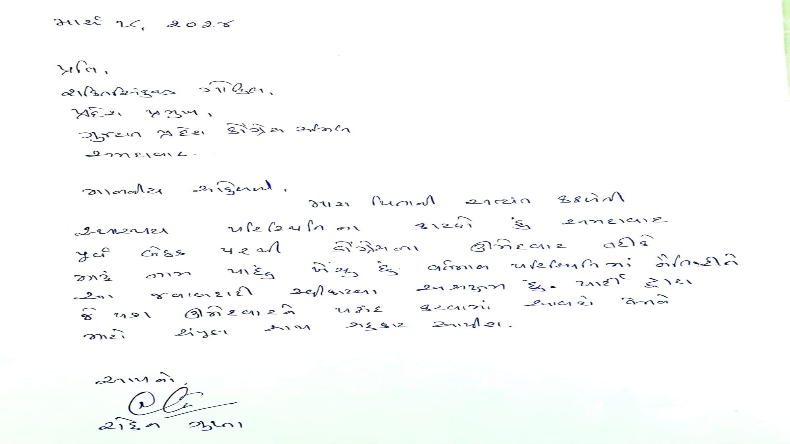 માર્ચ ૧૮, ૨૦૨૪
પ્રતિ,
શક્તિસિંહજી ગોહિલ,
પ્રદેશ પ્રમુખ,
ગુજરાત પ્રદેશ કોંગ્રેસ સમિતિ
અમદાવાદ.
માનનીય શક્તિભાઈ,
મારા પિતાની અત્યંત કથળેલી
સ્વાસ્થ્ય પરિસ્થિતિના કારણે હું અમદાવાદ
પૂર્વ બેઠક પરથી કોંગ્રેસના ઉમેદવાર તરીકે
મારું નામ પાછું ખેંચું છું. વર્તમાન પરિસ્થિતિમાં નૈતિકરીતે
આ જવાબદારી સ્વીકારવા અસમર્થ છું. પાર્ટી દ્વારા
જે પણ ઉમેદવારને પસંદ કરવામાં આવશે તેમને
મારો સંપૂર્ણ સાથ સહકાર આપીશ.
આપનો,
રોહન ગુપ્તા